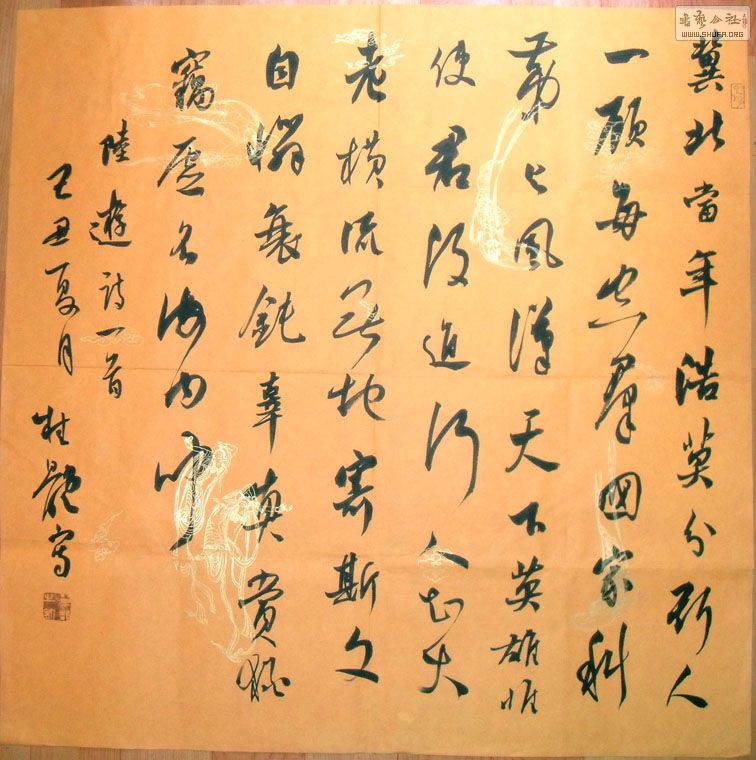 冀北當年浩莫分斫人
一顧每空羣國家科
第與風漢天下英雄惟
使君後進何人知大
老橫流無地寄斯文
自憐衰鈍辜真賞猶
竊虛名海內聞
陸遊詩一首
己丑夏月 寫
書藝公社
WWW.SHUFA.ORG